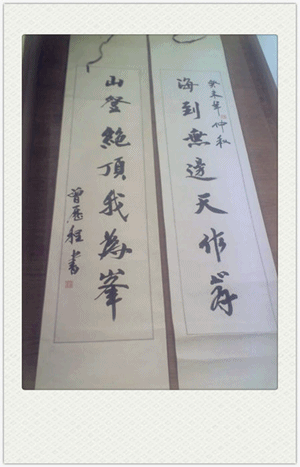 癸未年仲秋
海到無邊天作岸
山登絶頂我為峯
曾程書